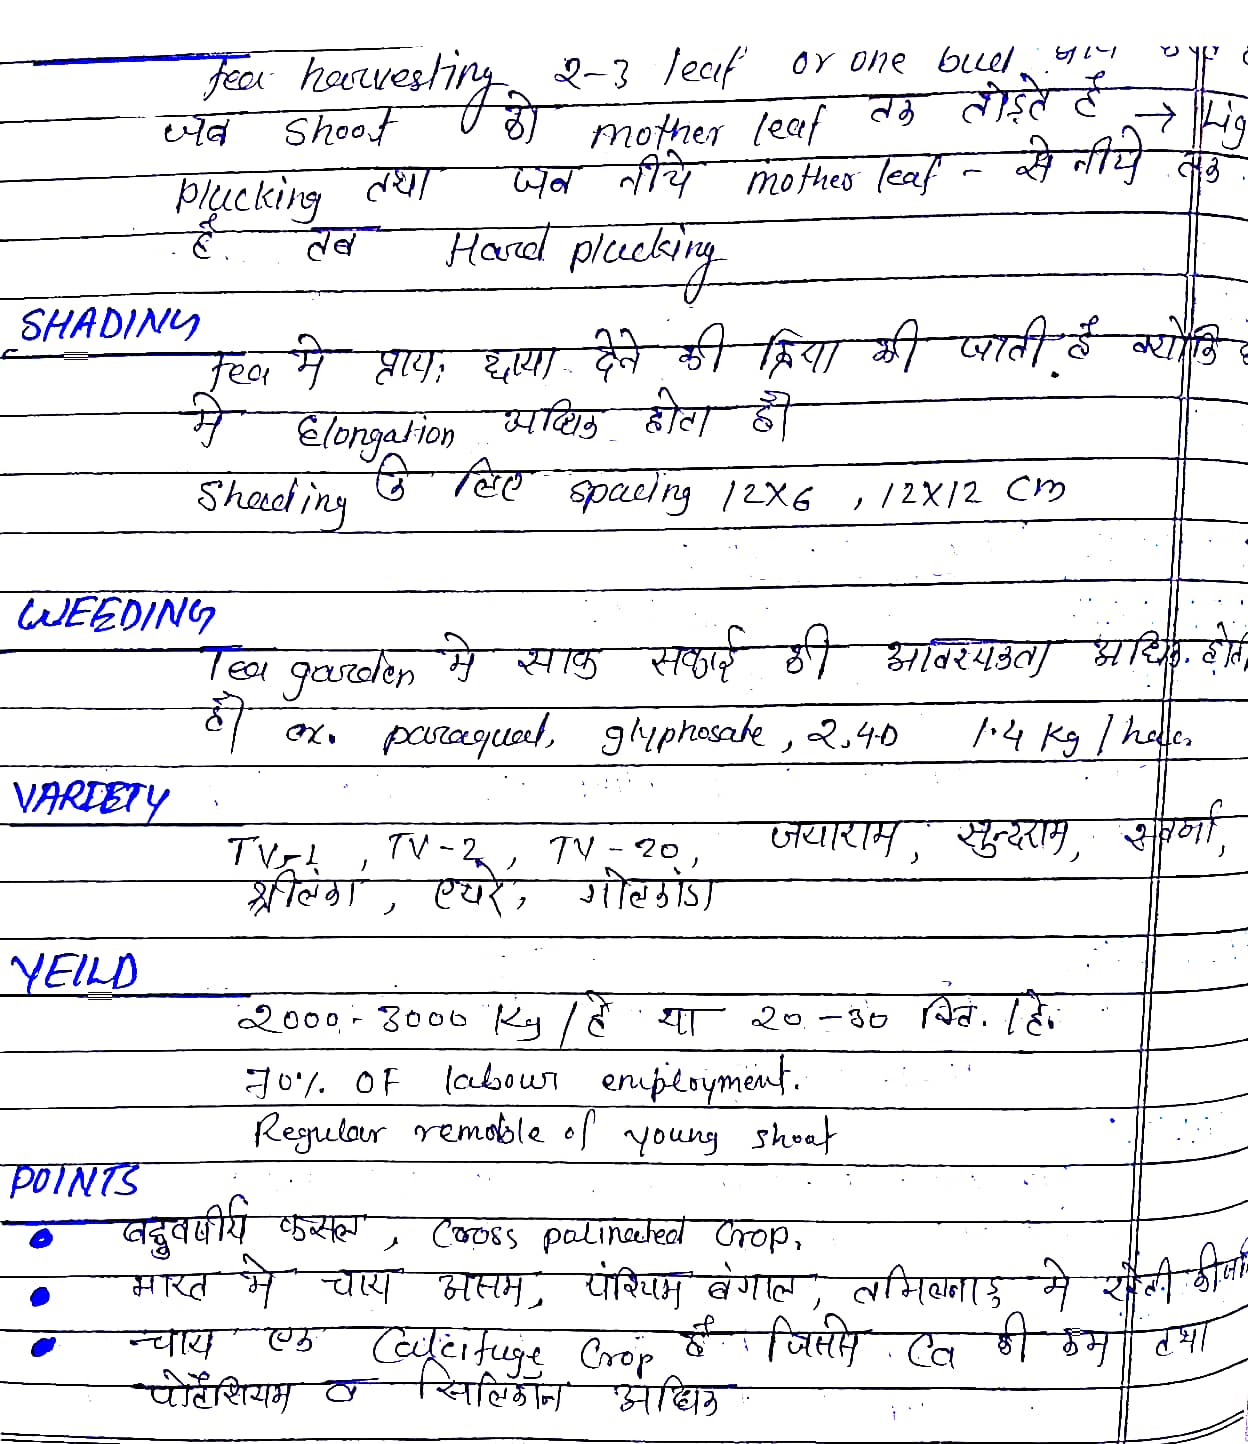 Tea harvesting 2-3 leaf or one bud
जब shoot को mother leaf तक तोड़ते है → Lig
plucking तथा जब नीचे mother leaf - से नीचे तक
है. तब Hard plucking
SHADING
Tea मे प्रायः छाया देने की क्रिया की जाती है क्योकि
मे Elongation अधिक होता है।
Shading के लिए spacing 12x6 , 12x12 cm
WEEDING
Tea garden मे साफ सफाई की आवश्यकता अधिक होती
है। ex. paraquat, glyphosate, 2,4-D 1.4 kg / hac.
VARIETY
TV-1 , TV-2, TV-20, जयाराम, सुन्दराम, सुवर्णा,
श्रीलंका, एवरे, गोलकोंडा
YEILD
2000-3000 Kg / हे या 20-30 क्वि. / हे.
70% OF labour employment.
Regular remoble of young shoot
POINTS
बहुवर्षीय फसल, Cross palinated Crop.
भारत मे चाय असम, पश्चिम बंगाल, तमिलनाडु मे खेती की जा
चाय एक Calcifuge Crop है जिसमे Ca की कम तथा
पोटैशियम व सिलिकॉन अधिक